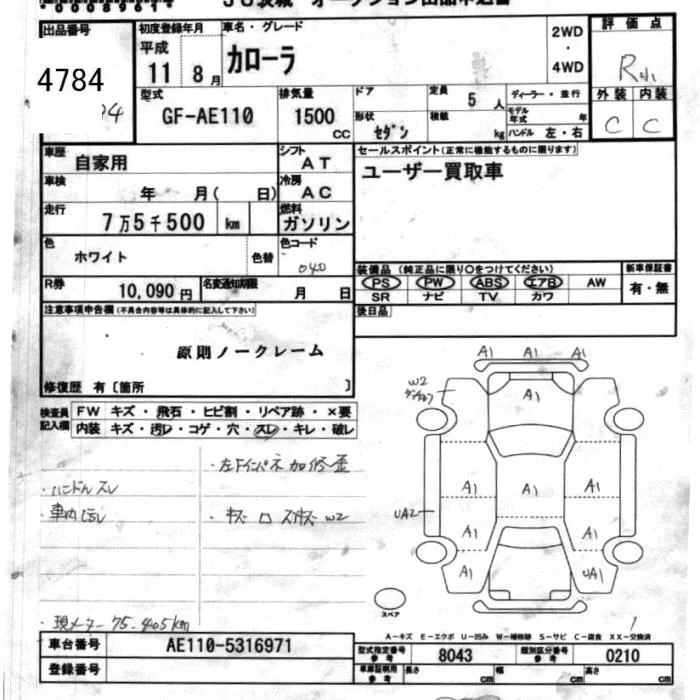 00089614
JU茨城 オークション出品申込書
出品番号 初度登録年月 車名・グレード 2WD・4WD 評価点
4784 平成 11 8月 カローラ R
型式 GF-AE110 排気量 1500 cc ドア 定員 5 人 ディーラー・並行 外装 内装
形状 セダン 積載 kg モデル年式 年 ハンドル 左・右 C C
車歴 自家用 シフト AT セールスポイント(正常に機能するものに限ります)
車検 年 月( 日) 冷房 AC ユーザー買取車
走行 7万5千500 km 燃料 ガソリン
色 ホワイト 色替 色コード 040
装備品 (純正品に限り○をつけてください) 新車保証書
R券 10,090円 名変通知期限 月 日 PS PW ABS エアB AW 有・無
SR ナビ TV カワ
注意事項申告欄(不具合内容等は具体的に記入して下さい) 後日品
原則ノークレーム
修復歴 有〔箇所 〕
検査員記入欄 FW キズ・飛石・ヒビ割・リペア跡・×要
内装 キズ・汚レ・コゲ・穴・スレ・キレ・破レ
・左下インパネ加修歪
・ハンドルスレ
・車内汚レ ・キズ W2
・現メーター 75-405km
A1 A1 A1
W2 A1
A1 A1 A1
UA2
A1 A1
A1 UA1
スペア
A-キズ E-エクボ U-凹み W-補修跡 S-サビ C-腐食 XX-交換済
車台番号 AE110-5316971 型式指定番号 参考 8043 類別区分番号 参考 0210
登録番号 車庫証明用 参考 長さ cm 幅 cm 高さ cm